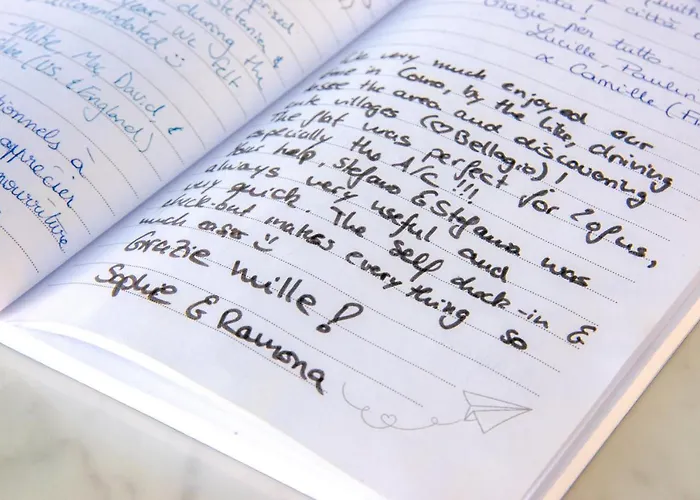 prised
Stefania &
during the
year. We felt
accommodated :)
Mike, Mx, David, &
(US & England)
tionnels à
apprécier
nourriture
We very much enjoyed our
time in Como, by the lake, driving
across the area and discovering
cute villages (♡Bellagio)!
The flat was perfect for 2 of us,
especially the A/C !!!
Your help, Stefano & Stefania was
always very useful and
very quick. The self check-in &
check-out makes everything so
much easier :)
Grazie mille!
Sophie & Ramona
città
Grazie per tutto.
Lucille, Paulin
& Camille (Fr